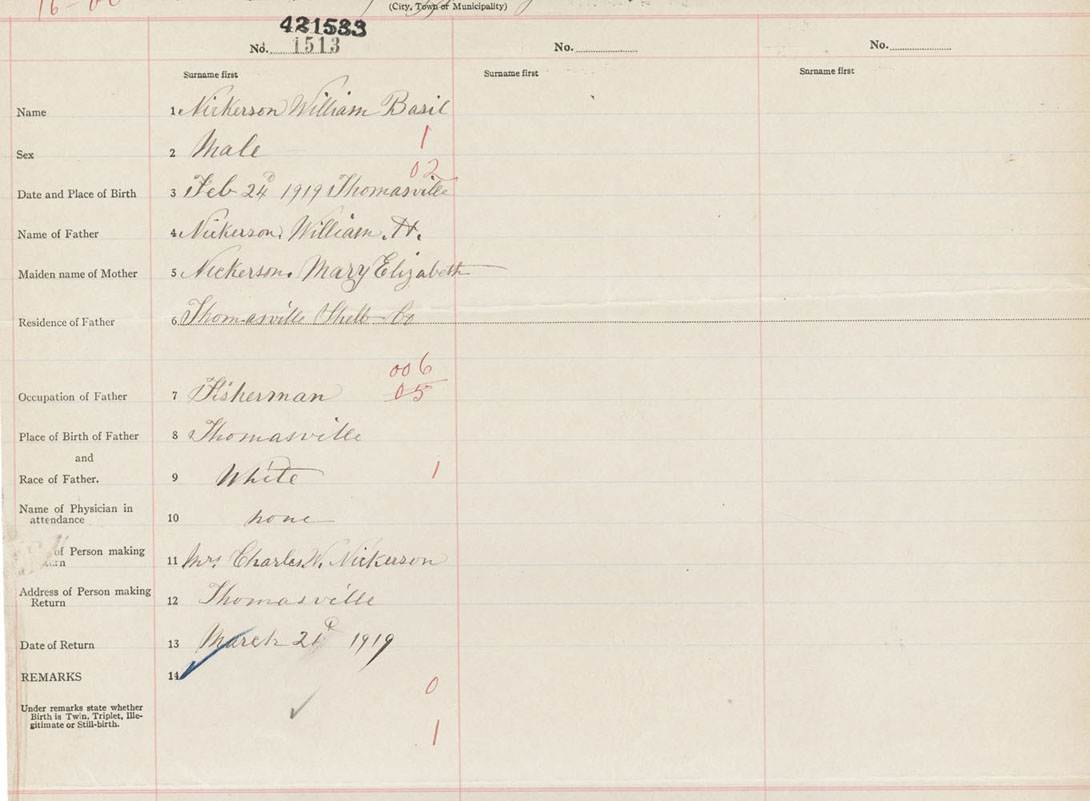 16-0
(City, Town or Municipality)
421533
No. 1513 No. No.
Surname first Surname first Surname first
Name 1 Nickerson William Basil
1
Sex 2 Male
02
Date and Place of Birth 3 Feb 24 1919 Thomasville
Name of Father 4 Nickerson, William. H.
Maiden name of Mother 5 Nickerson. Mary Elizabeth
Residence of Father 6 Thomasville Shelb Co
006
Occupation of Father 7 Fisherman 05
Place of Birth of Father 8 Thomasville
and
Race of Father. 9 White 1
Name of Physician in
attendance 10 none
of Person making
11 Mrs Charles W. Nickerson
Address of Person making
Return 12 Thomasville
Date of Return 13 March 21 1919
REMARKS 14
0
Under remarks state whether
Birth is Twin, Triplet, Ille-
gitimate or Still-birth.
1